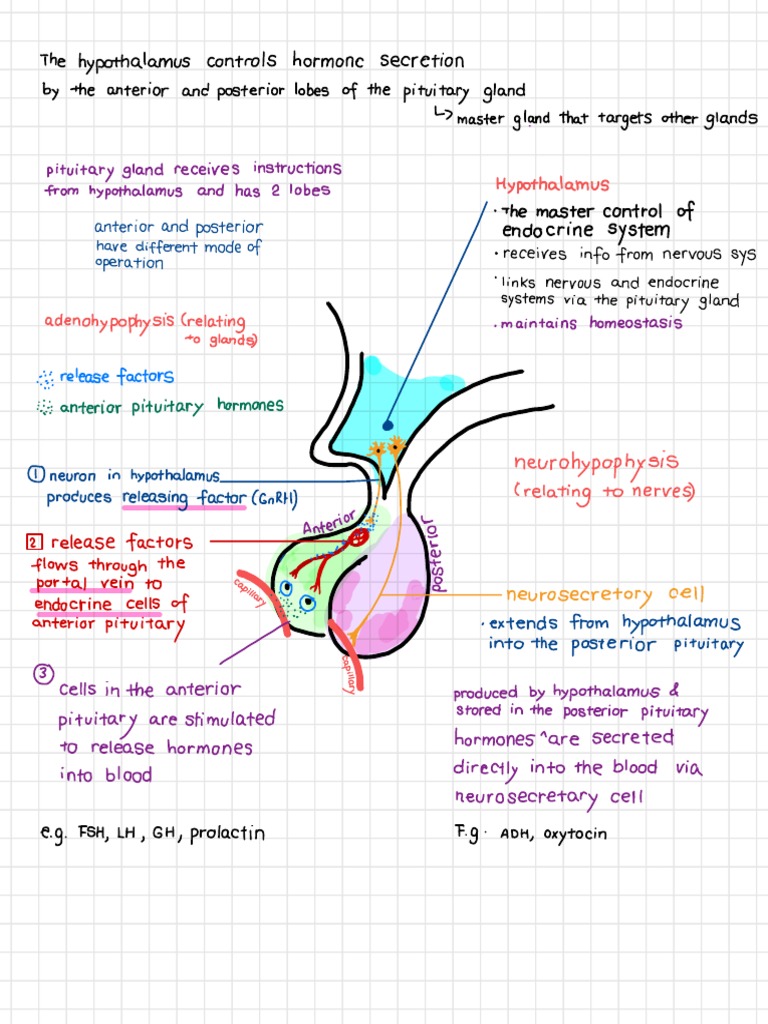 The hypothalamus controls hormone secretion
by the anterior and posterior lobes of the pituitary gland
↳ master gland that targets other glands
pituitary gland receives instructions
from hypothalamus and has 2 lobes
anterior and posterior
have different mode of
operation
adenohypophysis (relating
to glands)
release factors
anterior pituitary hormones
① neuron in hypothalamus
produces releasing factor (GnRH)
2 release factors
flows through the
portal vein to
endocrine cells of
anterior pituitary
③
cells in the anterior
pituitary are stimulated
to release hormones
into blood
e.g. FSH, LH, GH, prolactin
Hypothalamus
· The master control of
endocrine system
· receives info from nervous sys
· links nervous and endocrine
systems via the pituitary gland
· maintains homeostasis
Anterior
posterior
capillary
capillary
neurohypophysis
(relating to nerves)
neurosecretory cell
· extends from hypothalamus
into the posterior pituitary
produced by hypothalamus &
stored in the posterior pituitary
hormones ^are secreted
directly into the blood via
neurosecretary cell
F.g. ADH, oxytocin